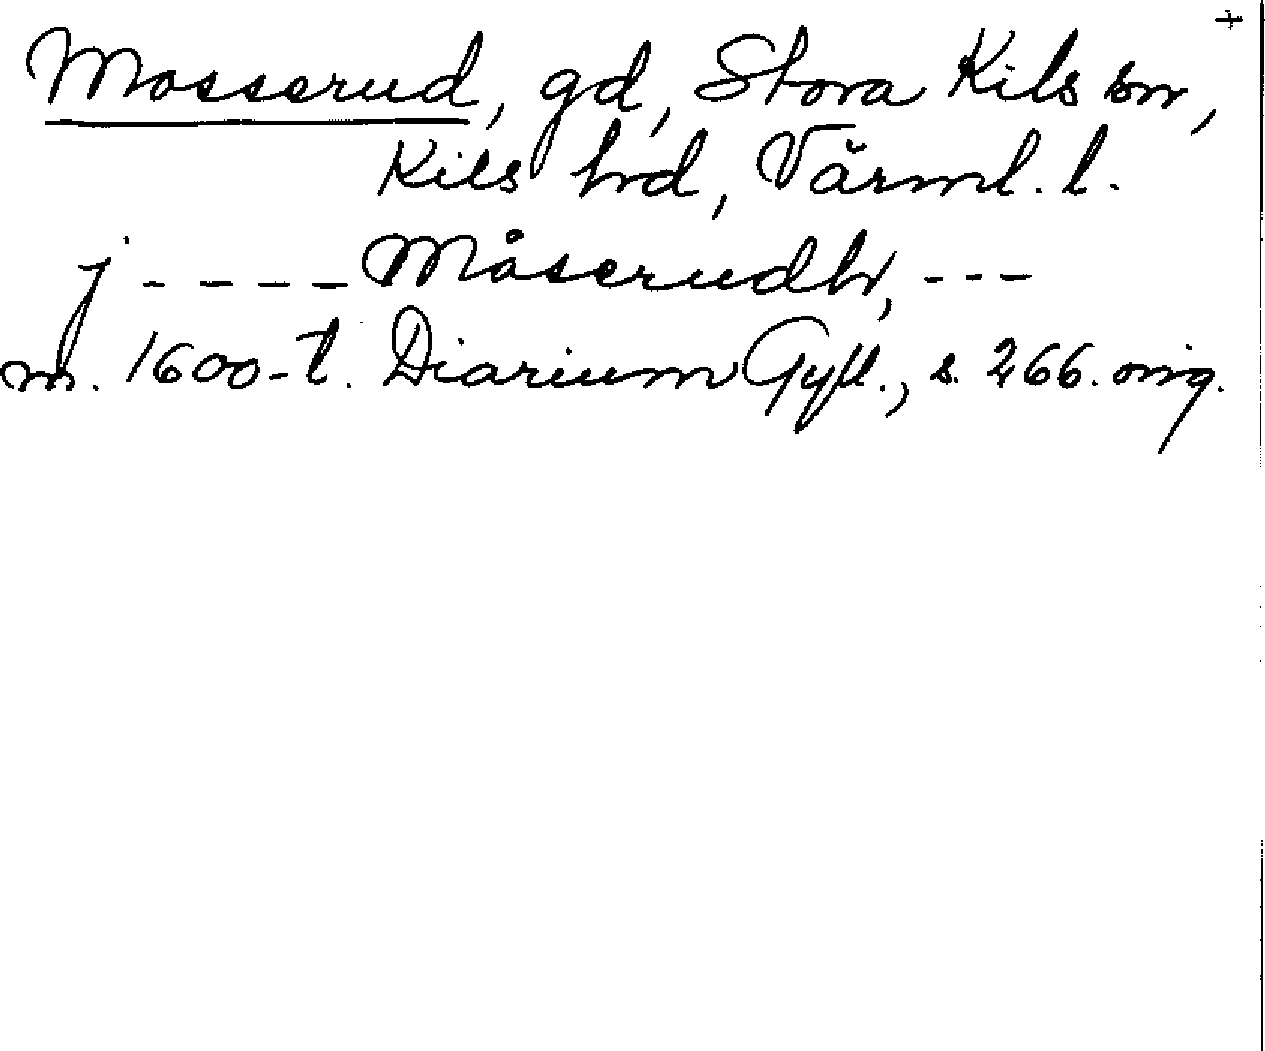 +
Mosserud, gd, Stora Kils sn,
Kils hrd, Värml. l.
j - - - - Måserudh, - - -
m. 1600-t. Diarium Gyll., s. 266. orig.